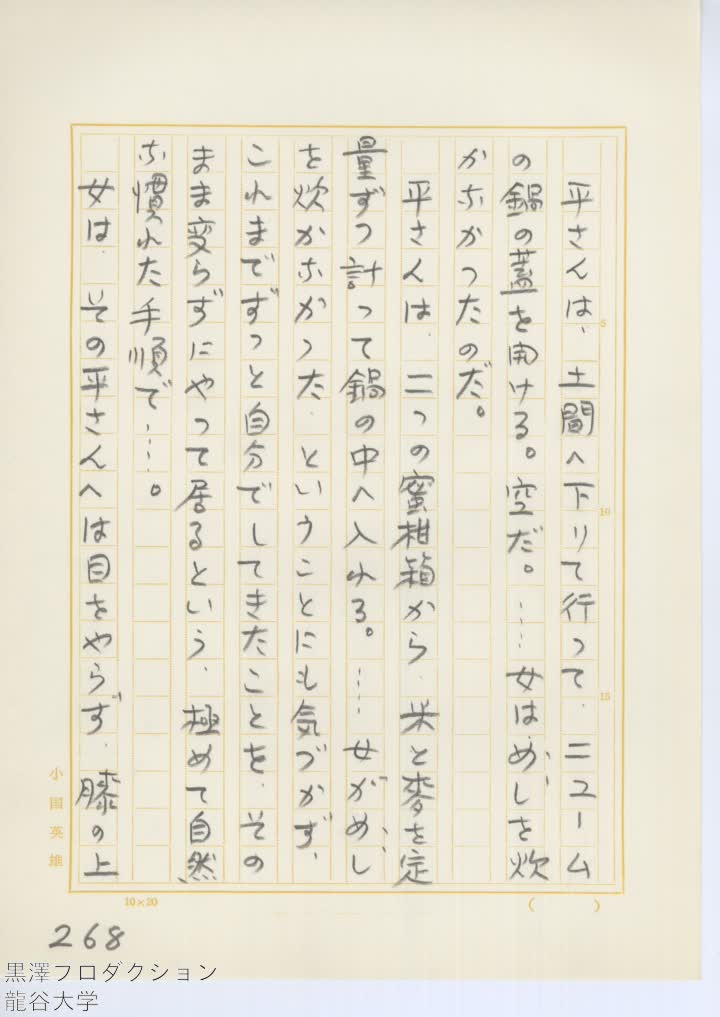 平さんは、土間へ下りて行って、ニューム
の鍋の蓋を開ける。空だ。……女はめしを炊
かなかったのだ。
平さんは、二つの蜜柑箱から、米と麥を定
量ずつ計って鍋の中へ入れる。……女がめし
を炊かなかった、ということにも気づかず、
これまでずっと自分でしてきたことを、その
まま変らずにやって居るという、極めて自然
な慣れた手順で……。
女は、その平さんへは目をやらず、膝の上
5
10
15
小国英雄
10×20
( )
268
黒澤プロダクション
龍谷大学